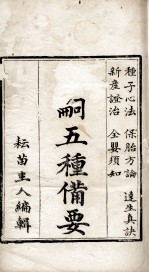 種子心法 保胎方論 達生真訣
新産證治 全嬰須知
嗣五種備要
耘苗主人編輯